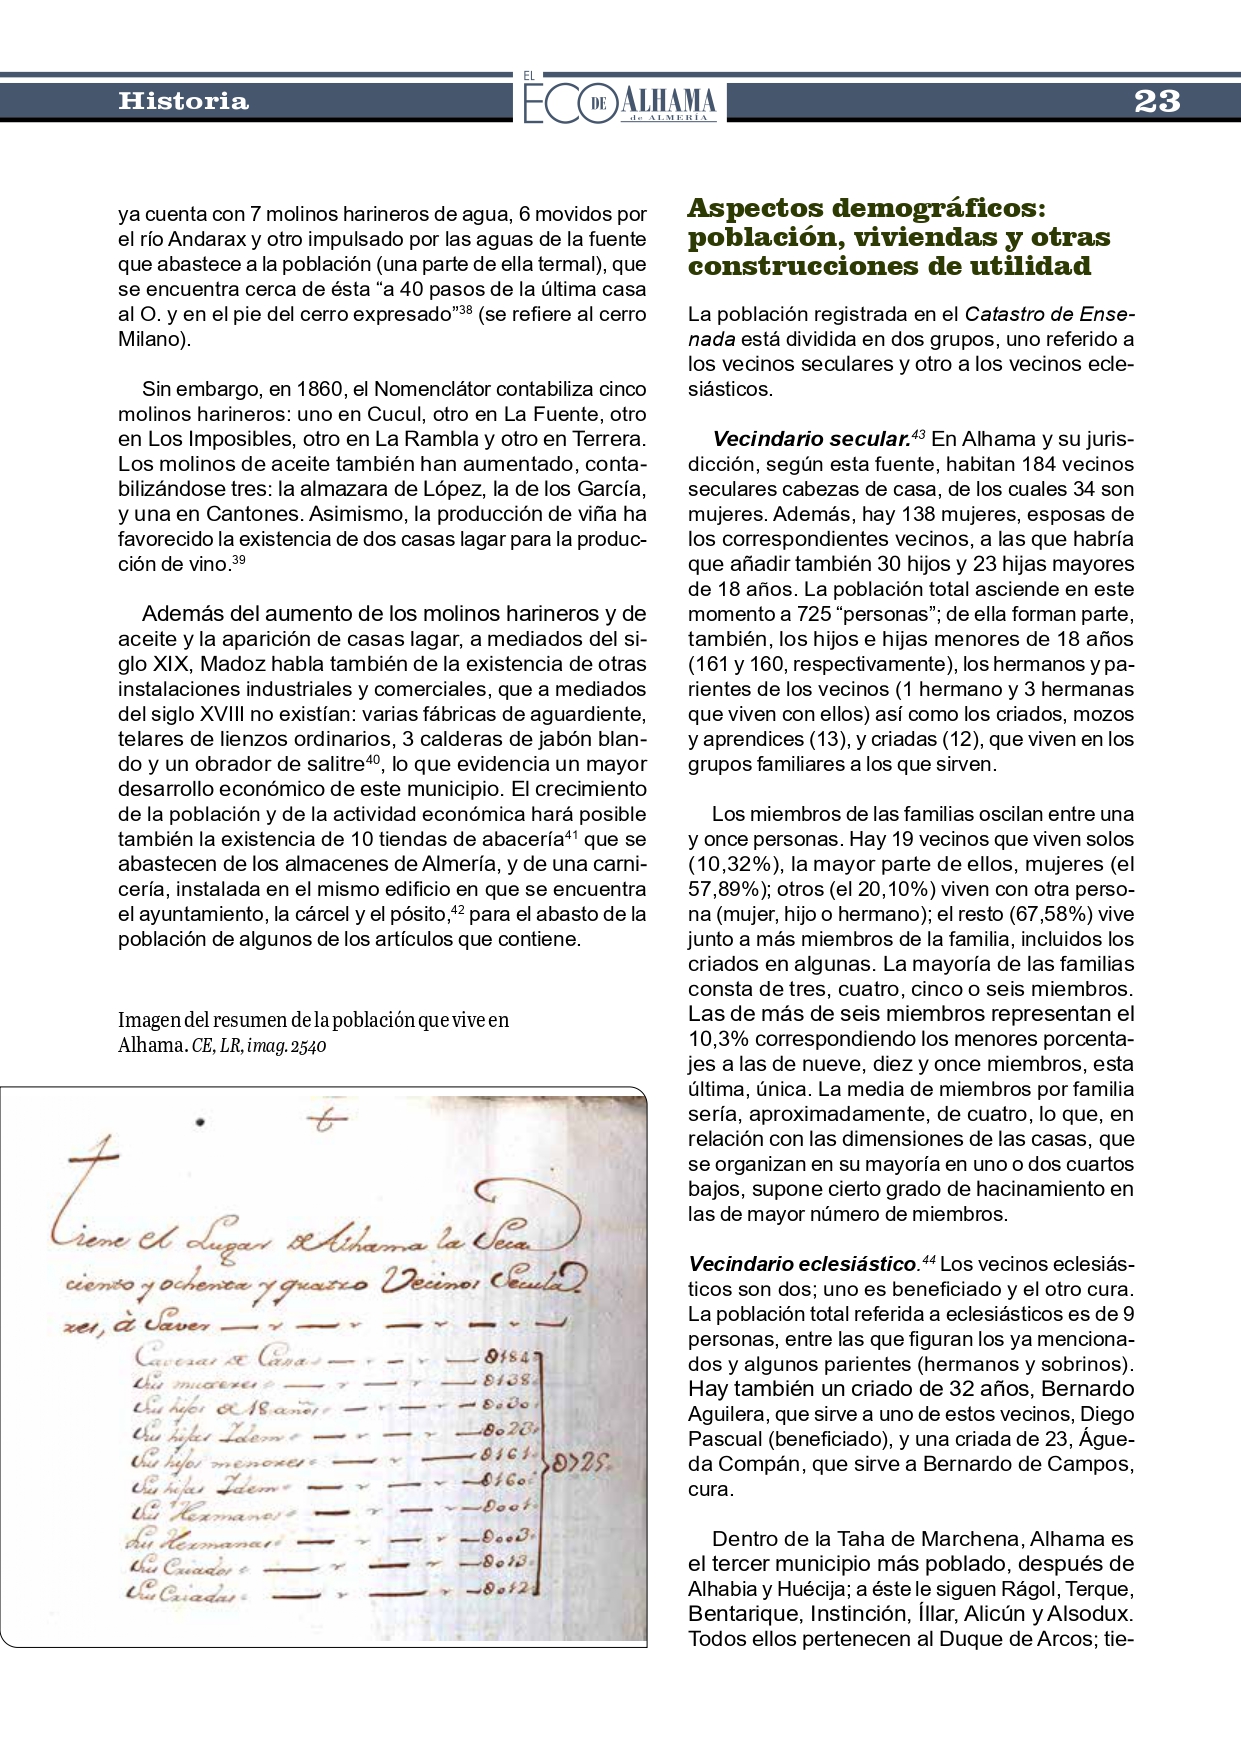 Historia
EL
ECO DE ALHAMA
de ALMERÍA
23
ya cuenta con 7 molinos harineros de agua, 6 movidos por
el río Andarax y otro impulsado por las aguas de la fuente
que abastece a la población (una parte de ella termal), que
se encuentra cerca de ésta “a 40 pasos de la última casa
al O. y en el pie del cerro expresado”38 (se refiere al cerro
Milano).
Sin embargo, en 1860, el Nomenclátor contabiliza cinco
molinos harineros: uno en Cucul, otro en La Fuente, otro
en Los Imposibles, otro en La Rambla y otro en Terrera.
Los molinos de aceite también han aumentado, conta-
bilizándose tres: la almazara de López, la de los García,
y una en Cantones. Asimismo, la producción de viña ha
favorecido la existencia de dos casas lagar para la produc-
ción de vino.39
Además del aumento de los molinos harineros y de
aceite y la aparición de casas lagar, a mediados del si-
glo XIX, Madoz habla también de la existencia de otras
instalaciones industriales y comerciales, que a mediados
del siglo XVIII no existían: varias fábricas de aguardiente,
telares de lienzos ordinarios, 3 calderas de jabón blan-
do y un obrador de salitre40, lo que evidencia un mayor
desarrollo económico de este municipio. El crecimiento
de la población y de la actividad económica hará posible
también la existencia de 10 tiendas de abacería41 que se
abastecen de los almacenes de Almería, y de una carni-
cería, instalada en el mismo edificio en que se encuentra
el ayuntamiento, la cárcel y el pósito,42 para el abasto de la
población de algunos de los artículos que contiene.
Imagen del resumen de la población que vive en
Alhama. CE, LR, imag. 2540
Tiene el Lugar de Alhama la Seca
ciento y ochenta y quatro Vecinos Secula
res, à Saver
Cavezas de Casa 0184
Sus mugeres 0138
Sus hijos de 18 años 0030
Sus hijas Idem 0023
Sus hijos menores 0161
Sus hijas Idem 0160
Sus Hermanos 0001
Sus Hermanas 0003
Sus Criados 0013
Sus Criadas 0012
0725
Aspectos demográficos:
población, viviendas y otras
construcciones de utilidad
La población registrada en el Catastro de Ense-
nada está dividida en dos grupos, uno referido a
los vecinos seculares y otro a los vecinos ecle-
siásticos.
Vecindario secular.43 En Alhama y su juris-
dicción, según esta fuente, habitan 184 vecinos
seculares cabezas de casa, de los cuales 34 son
mujeres. Además, hay 138 mujeres, esposas de
los correspondientes vecinos, a las que habría
que añadir también 30 hijos y 23 hijas mayores
de 18 años. La población total asciende en este
momento a 725 “personas”; de ella forman parte,
también, los hijos e hijas menores de 18 años
(161 y 160, respectivamente), los hermanos y pa-
rientes de los vecinos (1 hermano y 3 hermanas
que viven con ellos) así como los criados, mozos
y aprendices (13), y criadas (12), que viven en los
grupos familiares a los que sirven.
Los miembros de las familias oscilan entre una
y once personas. Hay 19 vecinos que viven solos
(10,32%), la mayor parte de ellos, mujeres (el
57,89%); otros (el 20,10%) viven con otra perso-
na (mujer, hijo o hermano); el resto (67,58%) vive
junto a más miembros de la familia, incluidos los
criados en algunas. La mayoría de las familias
consta de tres, cuatro, cinco o seis miembros.
Las de más de seis miembros representan el
10,3% correspondiendo los menores porcenta-
jes a las de nueve, diez y once miembros, esta
última, única. La media de miembros por familia
sería, aproximadamente, de cuatro, lo que, en
relación con las dimensiones de las casas, que
se organizan en su mayoría en uno o dos cuartos
bajos, supone cierto grado de hacinamiento en
las de mayor número de miembros.
Vecindario eclesiástico.44 Los vecinos eclesiás-
ticos son dos; uno es beneficiado y el otro cura.
La población total referida a eclesiásticos es de 9
personas, entre las que figuran los ya menciona-
dos y algunos parientes (hermanos y sobrinos).
Hay también un criado de 32 años, Bernardo
Aguilera, que sirve a uno de estos vecinos, Diego
Pascual (beneficiado), y una criada de 23, Águe-
da Compán, que sirve a Bernardo de Campos,
cura.
Dentro de la Taha de Marchena, Alhama es
el tercer municipio más poblado, después de
Alhabia y Huécija; a éste le siguen Rágol, Terque,
Bentarique, Instinción, Íllar, Alicún y Alsodux.
Todos ellos pertenecen al Duque de Arcos; tie-